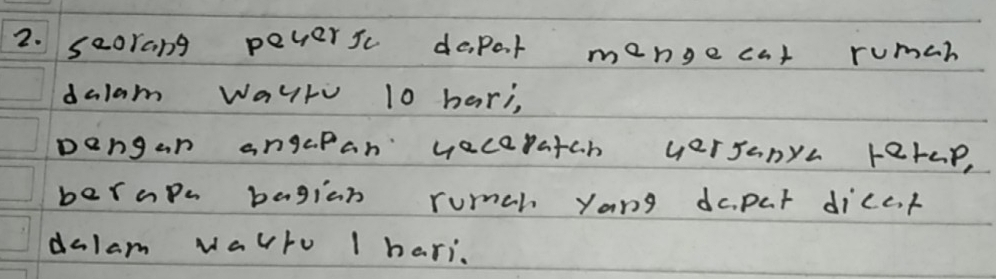 2. Seorang pekerja dapat mengecat rumah
dalam waktu 10 hari,
Dengan angapan kecepatan kerjanya tetap,
berapa bagian rumah yang dapat dicat
dalam waktu 1 hari.